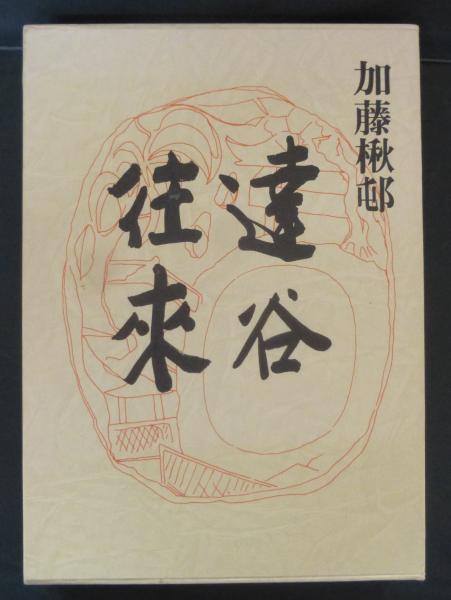 加藤楸邨
達谷
往來